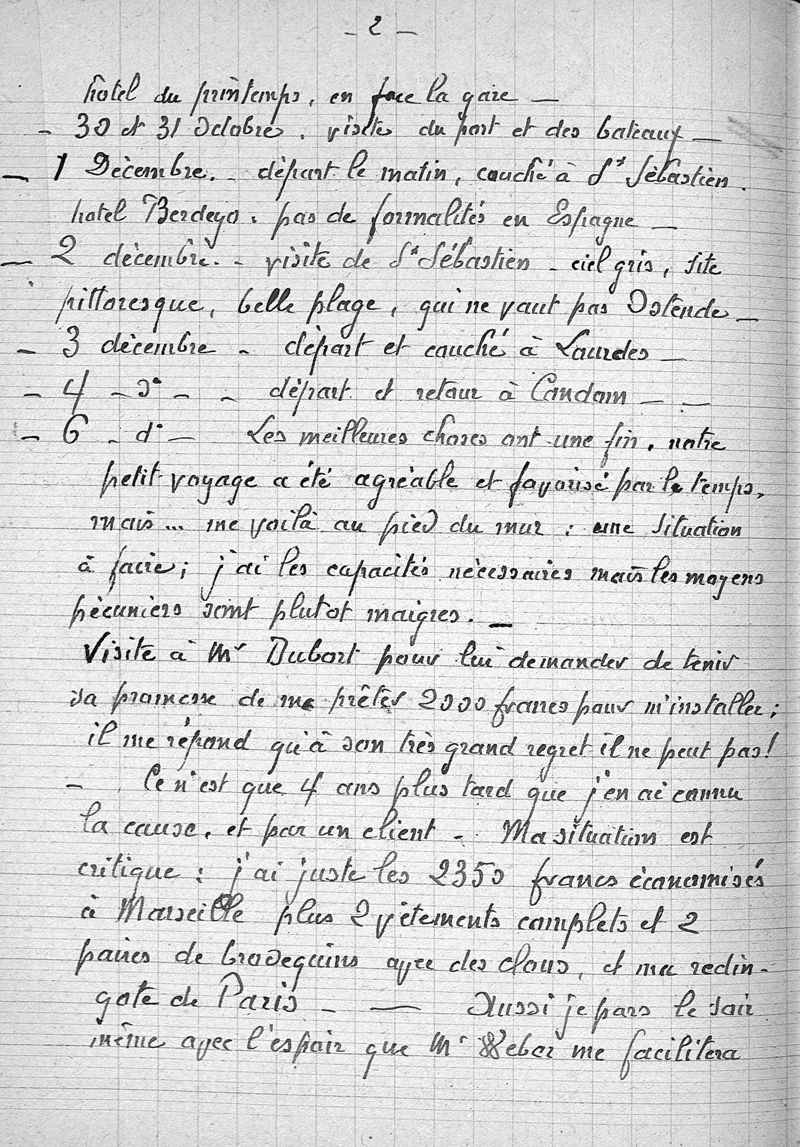 - 2 -
hotel du printemps, en face la gare -
- 30 et 31 Octobre. visites du port et des bateaux -
- 1 Décembre. - départ le matin, couché à St Sébastien.
hotel Berdejo. pas de formalités en Espagne -
- 2 décembre. - visite de St Sébastien - ciel gris, site
pittoresque, belle plage, qui ne vaut pas Ostende -
- 3 décembre - départ et couché à Lourdes -
- 4 - do - - départ et retour à Condom - -
- 6 - do - Les meilleures choses ont une fin, notre
petit voyage a été agréable et favorisé par le temps,
mais... me voilà au pied du mur : une situation
à faire ; j'ai les capacités nécessaires mais les moyens
pécuniers sont plutot maigres. -
Visite à Mr Dubort pour lui demander de tenir
sa promesse de me prêter 2000 francs pour m'installer ;
il me répond qu'à son très grand regret il ne peut pas !
- Ce n'est que 4 ans plus tard que j'en ai connu
la cause, et par un client - Ma situation est
critique : j'ai juste les 2350 francs économisés
à Marseille plus 2 vêtements complets et 2
paires de brodequins avec des clous, et ma redin-
gote de Paris - - Aussi je pars le soir
même avec l'espoir que Mr Weber me facilitera